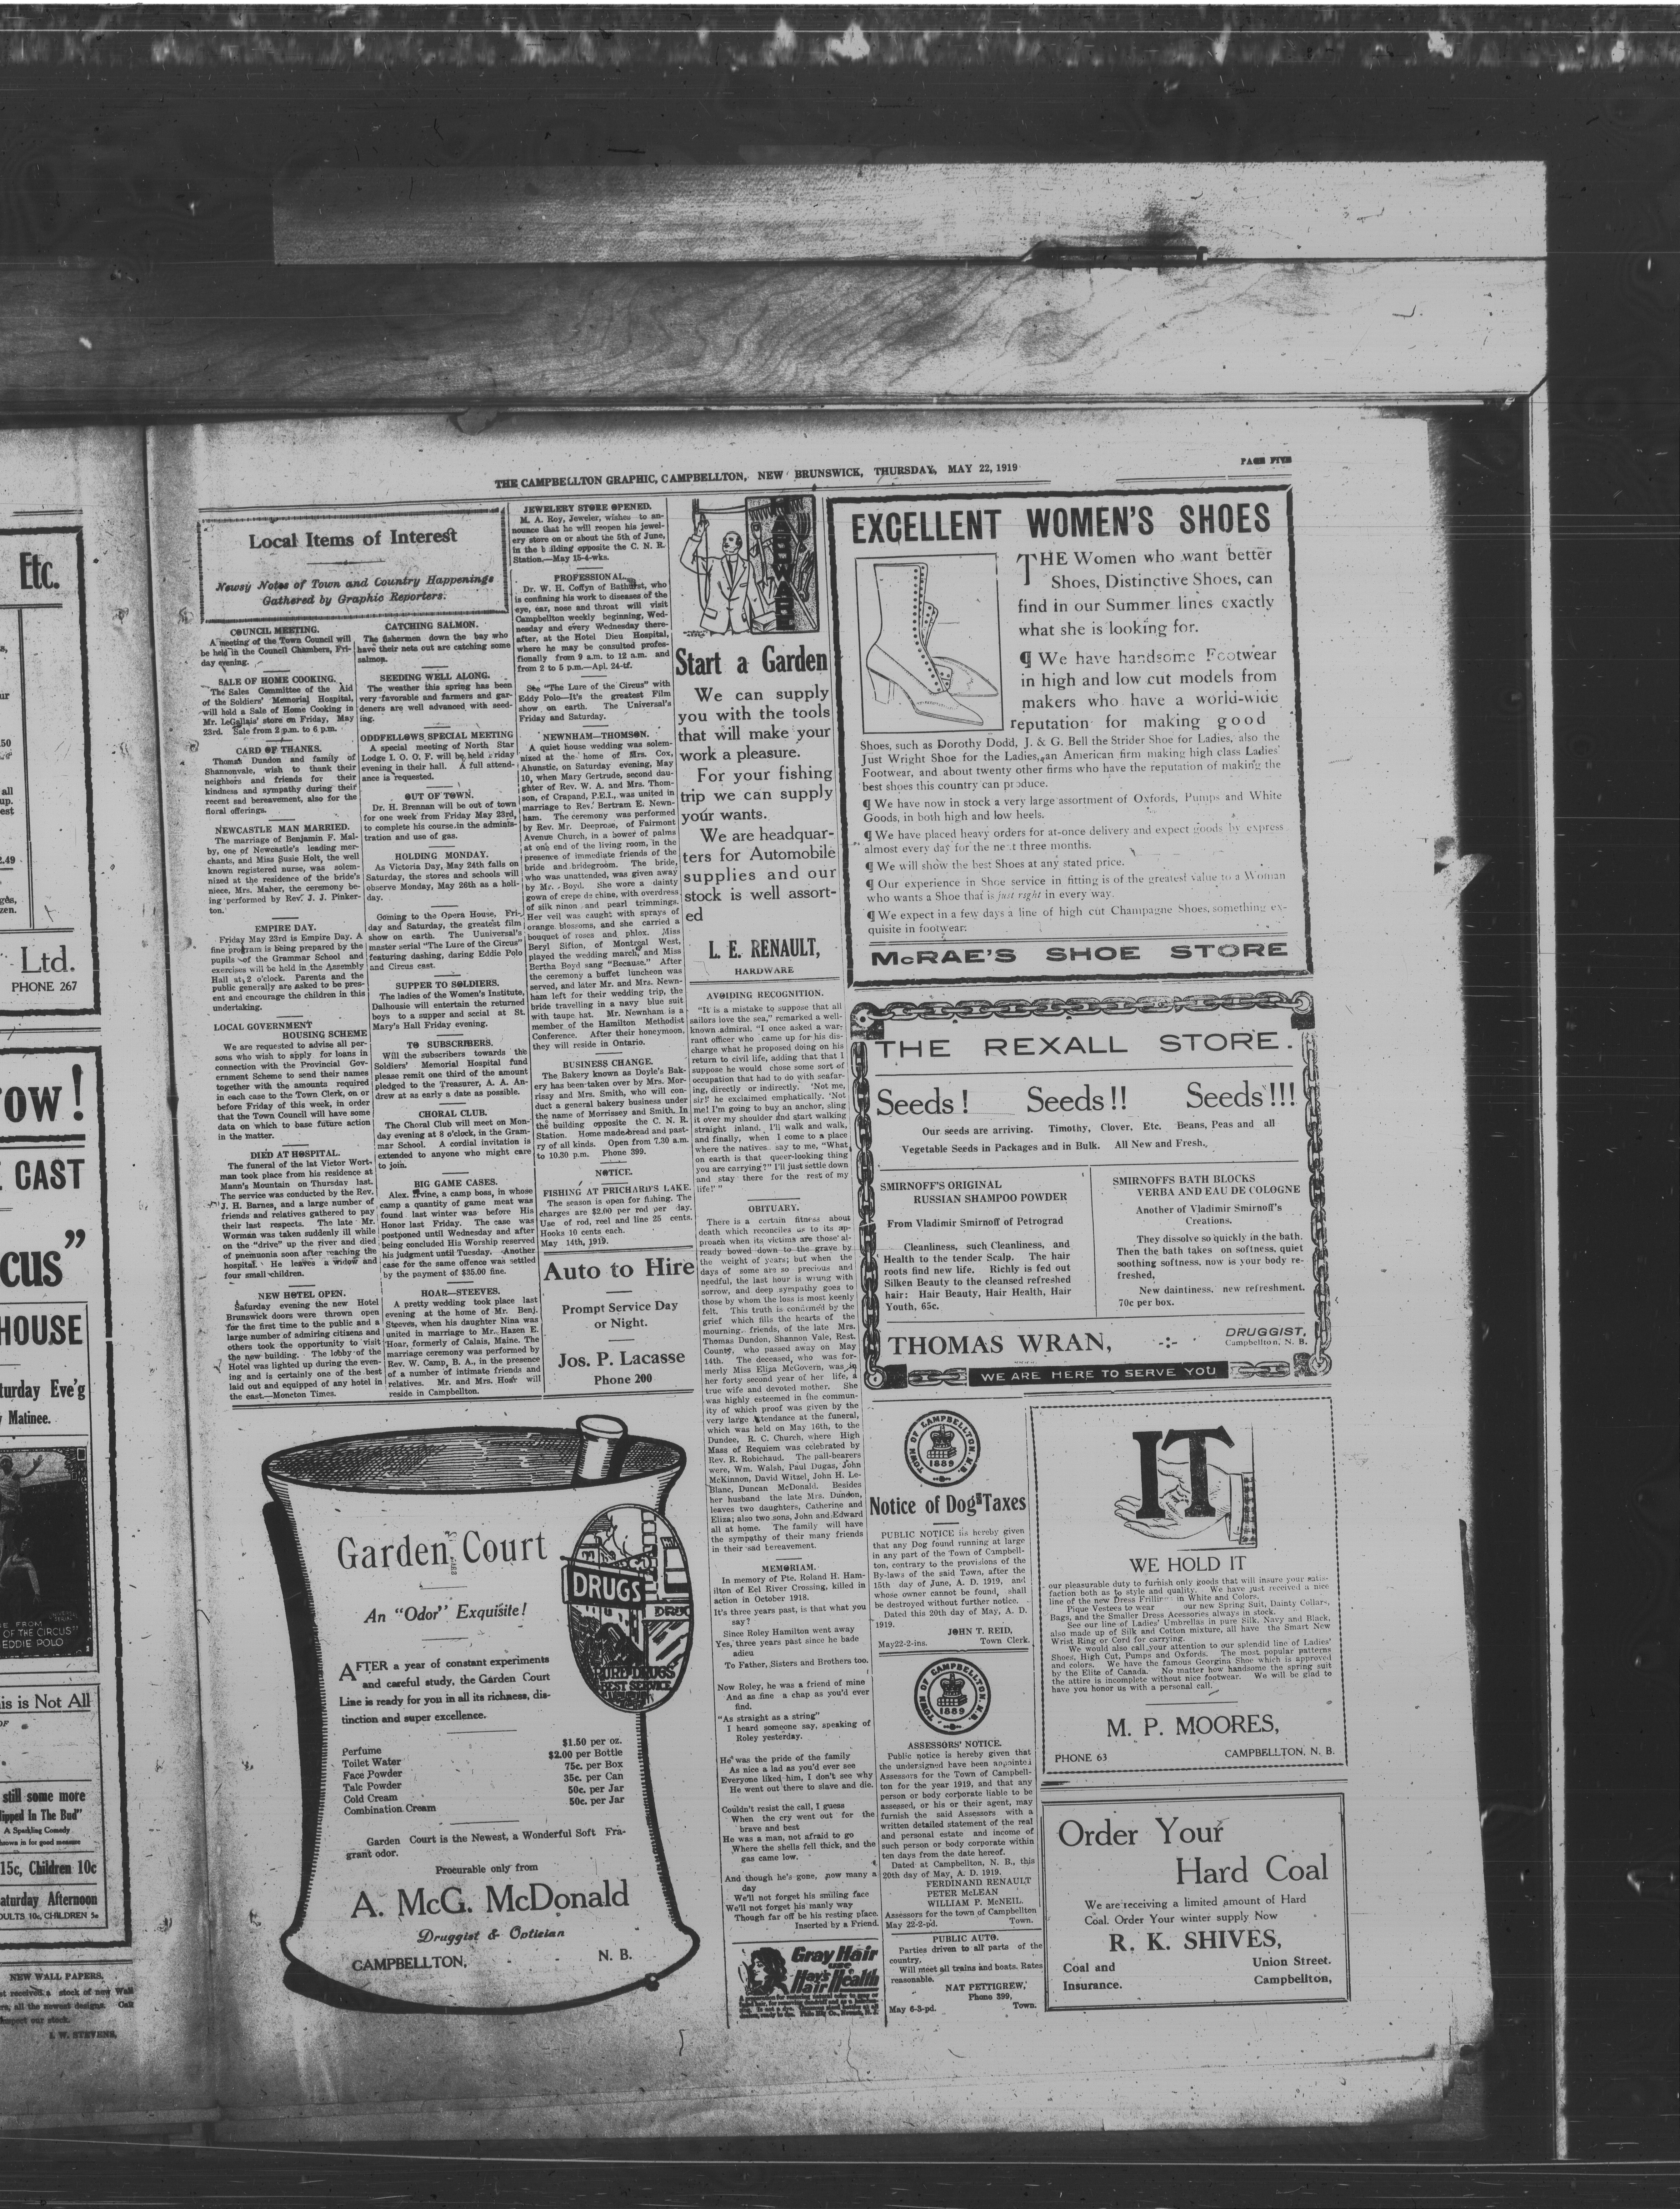 THE CAMPBELLTON GRAPHIC, CAMPBELLTON, NEW BRUNSWICK, THURSDAY, MAY 22, 1919
PAGE FIVE
Local Items of Interest
Newsy Notes of Town and Country Happenings
Gathered by Graphic Reporters.
COUNCIL MEETING.
A meeting of the Town Council will
be held in the Council Chambers, Fri-
day evening.
SALE OF HOME COOKING.
The Sales Committee of the Aid
of the Soldiers' Memorial Hospital,
will hold a Sale of Home Cooking in
Mr. LeGallais' store on Friday, May
23rd. Sale from 2 p.m. to 6 p.m.
CARD OF THANKS.
Thomas Dundon and family of
Shannonvale, wish to thank their
neighbors and friends for their
kindness and sympathy during their
recent sad bereavement, also for the
floral offerings.
NEWCASTLE MAN MARRIED.
The marriage of Benjamin F. Mal-
by, one of Newcastle's leading mer-
chants, and Miss Susie Holt, the well
known registered nurse, was solem-
nized at the residence of the bride's
niece, Mrs. Maher, the ceremony be-
ing performed by Rev. J. J. Pinker-
ton.
EMPIRE DAY.
Friday May 23rd is Empire Day. A
fine program is being prepared by the
pupils of the Grammar School and
exercises will be held in the Assembly
Hall at 2 o'clock. Parents and the
public generally are asked to be pres-
ent and encourage the children in this
undertaking.
LOCAL GOVERNMENT
HOUSING SCHEME
We are requested to advise all per-
sons who wish to apply for loans in
connection with the Provincial Gov-
ernment Scheme to send their names
together with the amounts required
in each case to the Town Clerk, on or
before Friday of this week, in order
that the Town Council will have some
data on which to base future action
in the matter.
DIED AT HOSPITAL.
The funeral of the lat Victor Wort-
man took place from his residence at
Mann's Mountain on Thursday last.
The service was conducted by the Rev.
J. H. Barnes, and a large number of
friends and relatives gathered to pay
their last respects. The late Mr.
Worman was taken suddenly ill while
on the "drive" up the river and died
of pneumonia soon after reaching the
hospital. He leaves a widow and
four small children.
NEW HOTEL OPEN.
Saturday evening the new Hotel
Brunswick doors were thrown open
for the first time to the public and a
large number of admiring citizens and
others took the opportunity to visit
the new building. The lobby of the
Hotel was lighted up during the even-
ing and is certainly one of the best
laid out and equipped of any hotel in
the east.—Moncton Times.
CATCHING SALMON.
The fishermen down the bay who
have their nets out are catching some
salmon.
SEEDING WELL ALONG.
The weather this spring has been
very favorable and farmers and gar-
deners are well advanced with seed-
ing.
ODDFELLOWS SPECIAL MEETING
A special meeting of North Star
Lodge I. O. O. F. will be held Friday
evening in their hall. A full attend-
ance is requested.
OUT OF TOWN.
Dr. H. Brennan will be out of town
for one week from Friday May 23rd,
to complete his course in the adminis-
tration and use of gas.
HOLDING MONDAY.
As Victoria Day, May 24th falls on
Saturday, the stores and schools will
observe Monday, May 26th as a holi-
day.
Coming to the Opera House, Fri-
day and Saturday, the greatest film
show on earth. The Uuniversal's
master serial "The Lure of the Circus"
featuring dashing, daring Eddie Polo
and Circus cast.
SUPPER TO SOLDIERS.
The ladies of the Women's Institute,
Dalhousie will entertain the returned
boys to a supper and social at St.
Mary's Hall Friday evening.
TO SUBSCRIBERS.
Will the subscribers towards the
Soldiers' Memorial Hospital fund
please remit one third of the amount
pledged to the Treasurer, A. A. An-
drew at as early a date as possible.
CHORAL CLUB.
The Choral Club will meet on Mon-
day evening at 8 o'clock, in the Gram-
mar School. A cordial invitation is
extended to anyone who might care
to join.
BIG GAME CASES.
Alex. Irvine, a camp boss, in whose
camp a quantity of game meat was
found last winter was before His
Honor last Friday. The case was
postponed until Wednesday and after
being concluded His Worship reserved
his judgment until Tuesday. Another
case for the same offence was settled
by the payment of $35.00 fine.
HOAR—STEEVES.
A pretty wedding took place last
evening at the home of Mr. Benj.
Steeves, when his daughter Nina was
united in marriage to Mr. Hazen E.
Hoar, formerly of Calais, Maine. The
marriage ceremony was performed by
Rev. W. Camp, B. A., in the presence
of a number of intimate friends and
relatives. Mr. and Mrs. Hoar will
reside in Campbellton.
JEWELERY STORE OPENED.
M. A. Roy, Jeweler, wishes to an-
nounce that he will reopen his jewel-
ery store on or about the 5th of June,
in the building opposite the C. N. R.
Station.—May 15-4-wks.
PROFESSIONAL.
Dr. W. H. Coffyn of Bathurst, who
is confining his work to diseases of the
eye, ear, nose and throat will visit
Campbellton weekly beginning, Wed-
nesday and every Wednesday there-
after, at the Hotel Dieu Hospital,
where he may be consulted profes-
fionally from 9 a.m. to 12 a.m. and
from 2 to 5 p.m.—Apl. 24-tf.
See "The Lure of the Circus" with
Eddy Polo—It's the greatest Film
show on earth. The Universal's
Friday and Saturday.
NEWNHAM—THOMSON.
A quiet house wedding was solem-
nized at the home of Mrs. Cox,
Ahunstic, on Saturday evening, May
10, when Mary Gertrude, second dau-
ghter of Rev. W. A. and Mrs. Thom-
son, of Crapand, P.E.I., was united in
marriage to Rev. Bertram E. Newn-
ham. The ceremony was performed
by Rev. Mr. Deeprose, of Fairmont
Avenue Church, in a bower of palms
at one end of the living room, in the
presence of immediate friends of the
bride and bridegroom. The bride,
who was unattended, was given away
by Mr. Boyd. She wore a dainty
gown of crepe de chine, with overdress
of silk ninon and pearl trimmings.
Her veil was caught with sprays of
orange blossoms, and she carried a
bouquet of roses and phlox. Miss
Beryl Sifton, of Montreal West,
played the wedding march, and Miss
Bertha Boyd sang "Because." After
the ceremony a buffet luncheon was
served, and later Mr. and Mrs. Newn-
ham left for their wedding trip, the
bride travelling in a navy blue suit
with taupe hat. Mr. Newnham is a
member of the Hamilton Methodist
Conference. After their honeymoon,
they will reside in Ontario.
BUSINESS CHANGE.
The Bakery known as Doyle's Bak-
ery has been taken over by Mrs. Mor-
rissy and Mrs. Smith, who will con-
duct a general bakery business under
the name of Morrissey and Smith. In
the building opposite the C. N. R.
Station. Home made bread and past-
ry of all kinds. Open from 7.30 a.m.
to 10.30 p.m. Phone 399.
NOTICE.
FISHING AT PRICHARD'S LAKE.
The season is open for fishing. The
charges are $2.00 per rod per day.
Use of rod, reel and line 25 cents.
Hooks 10 cents each.
May 14th, 1919.
Auto to Hire
Prompt Service Day
or Night.
Jos. P. Lacasse
Phone 200
Start a Garden
We can supply
you with the tools
that will make your
work a pleasure.
For your fishing
trip we can supply
your wants.
We are headquar-
ters for Automobile
supplies and our
stock is well assort-
ed
L. E. RENAULT,
HARDWARE
AVOIDING RECOGNITION.
"It is a mistake to suppose that all
sailors love the sea," remarked a well-
known admiral. "I once asked a war-
rant officer who came up for his dis-
charge what he proposed doing on his
return to civil life, adding that that I
suppose he would chose some sort of
occupation that had to do with seafar-
ing, directly or indirectly. 'Not me,
sir!' he exclaimed emphatically. 'Not
me! I'm going to buy an anchor, sling
it over my shoulder and start walking
straight inland. I'll walk and walk,
and finally, when I come to a place
where the natives say to me, "What
on earth is that queer-looking thing
you are carrying?" I'll just settle down
and stay there for the rest of my
life!'"
OBITUARY.
There is a certain fitness about
death which reconciles us to its ap-
proach when its victims are those al-
ready bowed down to the grave by
the weight of years; but when the
days of some are so precious and
needful, the last hour is wrung with
sorrow, and deep sympathy goes to
those by whom the loss is most keenly
felt. This truth is confirmed by the
grief which fills the hearts of the
mourning friends, of the late Mrs.
Thomas Dundon, Shannon Vale, Rest.
County, who passed away on May
14th. The deceased, who was for-
merly Miss Eliza McGovern, was in
her forty second year of her life, a
true wife and devoted mother. She
was highly esteemed in the commun-
ity of which proof was given by the
very large attendance at the funeral,
which was held on May 16th, to the
Dundee, R. C. Church, where High
Mass of Requiem was celebrated by
Rev. R. Robichaud. The pall-bearers
were, Wm. Walsh, Paul Dugas, John
McKinnon, David Witzel, John H. Le-
Blanc, Duncan McDonald. Besides
her husband the late Mrs. Dundon,
leaves two daughters, Catherine and
Eliza; also two sons, John and Edward
all at home. The family will have
the sympathy of their many friends
in their sad bereavement.
MEMORIAM.
In memory of Pte. Roland H. Ham-
ilton of Eel River Crossing, killed in
action in October 1918.
It's three years past, is that what you
say?
Since Roley Hamilton went away
Yes, three years past since he bade
adieu
To Father, Sisters and Brothers too.
Now Roley, he was a friend of mine
And as fine a chap as you'd ever
find.
"As straight as a string"
I heard someone say, speaking of
Roley yesterday.
He was the pride of the family
As nice a lad as you'd ever see
Everyone liked him, I don't see why
He went out there to slave and die.
Couldn't resist the call, I guess
When the cry went out for the
brave and best
He was a man, not afraid to go
Where the shells fell thick, and the
gas came low.
And though he's gone, now many a
day
We'll not forget his smiling face
We'll not forget his manly way
Though far off be his resting place.
Inserted by a Friend.
Gray Hair
use
Hay's
Hair Health
EXCELLENT WOMEN'S SHOES
THE Women who want better
Shoes, Distinctive Shoes, can
find in our Summer lines exactly
what she is looking for.
¶ We have handsome Footwear
in high and low cut models from
makers who have a world-wide
reputation for making good
Shoes, such as Dorothy Dodd, J. & G. Bell the Strider Shoe for Ladies, also the
Just Wright Shoe for the Ladies, an American firm making high class Ladies'
Footwear, and about twenty other firms who have the reputation of making the
best shoes this country can produce.
¶ We have now in stock a very large assortment of Oxfords, Pumps and White
Goods, in both high and low heels.
¶ We have placed heavy orders for at-once delivery and expect goods by express
almost every day for the next three months.
¶ We will show the best Shoes at any stated price.
¶ Our experience in Shoe service in fitting is of the greatest value to a Woman
who wants a Shoe that is just right in every way.
¶ We expect in a few days a line of high cut Champagne Shoes, something ex-
quisite in footwear.
McRAE'S SHOE STORE
THE REXALL STORE.
Seeds! Seeds!! Seeds!!!
Our seeds are arriving. Timothy, Clover, Etc. Beans, Peas and all
Vegetable Seeds in Packages and in Bulk. All New and Fresh.
SMIRNOFF'S ORIGINAL
RUSSIAN SHAMPOO POWDER
From Vladimir Smirnoff of Petrograd
Cleanliness, such Cleanliness, and
Health to the tender Scalp. The hair
roots find new life. Richly is fed out
Silken Beauty to the cleansed refreshed
hair: Hair Beauty, Hair Health, Hair
Youth, 65c.
SMIRNOFFS BATH BLOCKS
VERBA AND EAU DE COLOGNE
Another of Vladimir Smirnoff's
Creations.
They dissolve so quickly in the bath.
Then the bath takes on softness, quiet
soothing softness, now is your body re-
freshed,
New daintiness, new refreshment.
70c per box.
THOMAS WRAN, -:- DRUGGIST,
Campbellton, N. B.
WE ARE HERE TO SERVE YOU
Garden Court
An "Odor" Exquisite!
AFTER a year of constant experiments
and careful study, the Garden Court
Line is ready for you in all its richness, dis-
tinction and super excellence.
Perfume $1.50 per oz.
Toilet Water $2.00 per Bottle
Face Powder 75c. per Box
Talc Powder 35c. per Can
Cold Cream 50c. per Jar
Combination Cream 50c. per Jar
Garden Court is the Newest, a Wonderful Soft Fra-
grant odor.
Procurable only from
A. McG. McDonald
Druggist & Optician
CAMPBELLTON, N. B.
DRUGS
PURE DRUGS
BEST SERVICE
TOWN OF CAMPBELLTON, N.B.
1889
Notice of Dog Taxes
PUBLIC NOTICE is hereby given
that any Dog found running at large
in any part of the Town of Campbell-
ton, contrary to the provisions of the
By-laws of the said Town, after the
15th day of June, A. D. 1919, and
whose owner cannot be found, shall
be destroyed without further notice.
Dated this 20th day of May, A. D.
1919.
JOHN T. REID,
May22-2-ins. Town Clerk.
TOWN OF CAMPBELLTON, N.B.
1889
ASSESSORS' NOTICE.
Public notice is hereby given that
the undersigned have been appointed
Assessors for the Town of Campbell-
ton for the year 1919, and that any
person or body corporate liable to be
assessed, or his or their agent, may
furnish the said Assessors with a
written detailed statement of the real
and personal estate and income of
such person or body corporate within
ten days from the date hereof.
Dated at Campbellton, N. B., this
20th day of May, A. D. 1919.
FERDINAND RENAULT
PETER McLEAN
WILLIAM P. McNEIL.
Assessors for the town of Campbellton
May 22-2-pd. Town.
PUBLIC AUTO.
Parties driven to all parts of the
country,
Will meet all trains and boats. Rates
reasonable.
NAT PETTIGREW,
Phone 399,
May 6-3-pd. Town.
IT
WE HOLD IT
our pleasurable duty to furnish only goods that will insure your satis-
faction both as to style and quality. We have just received a nice
line of the new Dress Frilling in White and Colors.
Pique Vestees to wear our new Spring Suit, Dainty Collars,
Bags, and the Smaller Dress Acessories always in stock.
See our line of Ladies' Umbrellas in pure Silk, Navy and Black,
also made up of Silk and Cotton mixture, all have the Smart New
Wrist Ring or Cord for carrying.
We would also call your attention to our splendid line of Ladies'
Shoes, High Cut, Pumps and Oxfords. The most popular patterns
and colors. We have the famous Georgina Shoe which is approved
by the Elite of Canada. No matter how handsome the spring suit
the attire is incomplete without nice footwear. We will be glad to
have you honor us with a personal call.
M. P. MOORES,
PHONE 63 CAMPBELLTON, N. B.
Order Your
Hard Coal
We are receiving a limited amount of Hard
Coal. Order Your winter supply Now
R. K. SHIVES,
Coal and Union Street.
Insurance. Campbellton,
Etc.
Ltd.
PHONE 267
ow!
CAST
cus"
HOUSE
turday Eve'g
Matinee.
OF THE CIRCUS"
EDDIE POLO
is is Not All
still some more
ipped In The Bud"
A Sparkling Comedy
15c, Children 10c
aturday Afternoon
DULTS 10c, CHILDREN 5c
NEW WALL PAPERS.
received a stock of new Wall
all the newest designs. Call
our stock.
I. W. STEVENS,